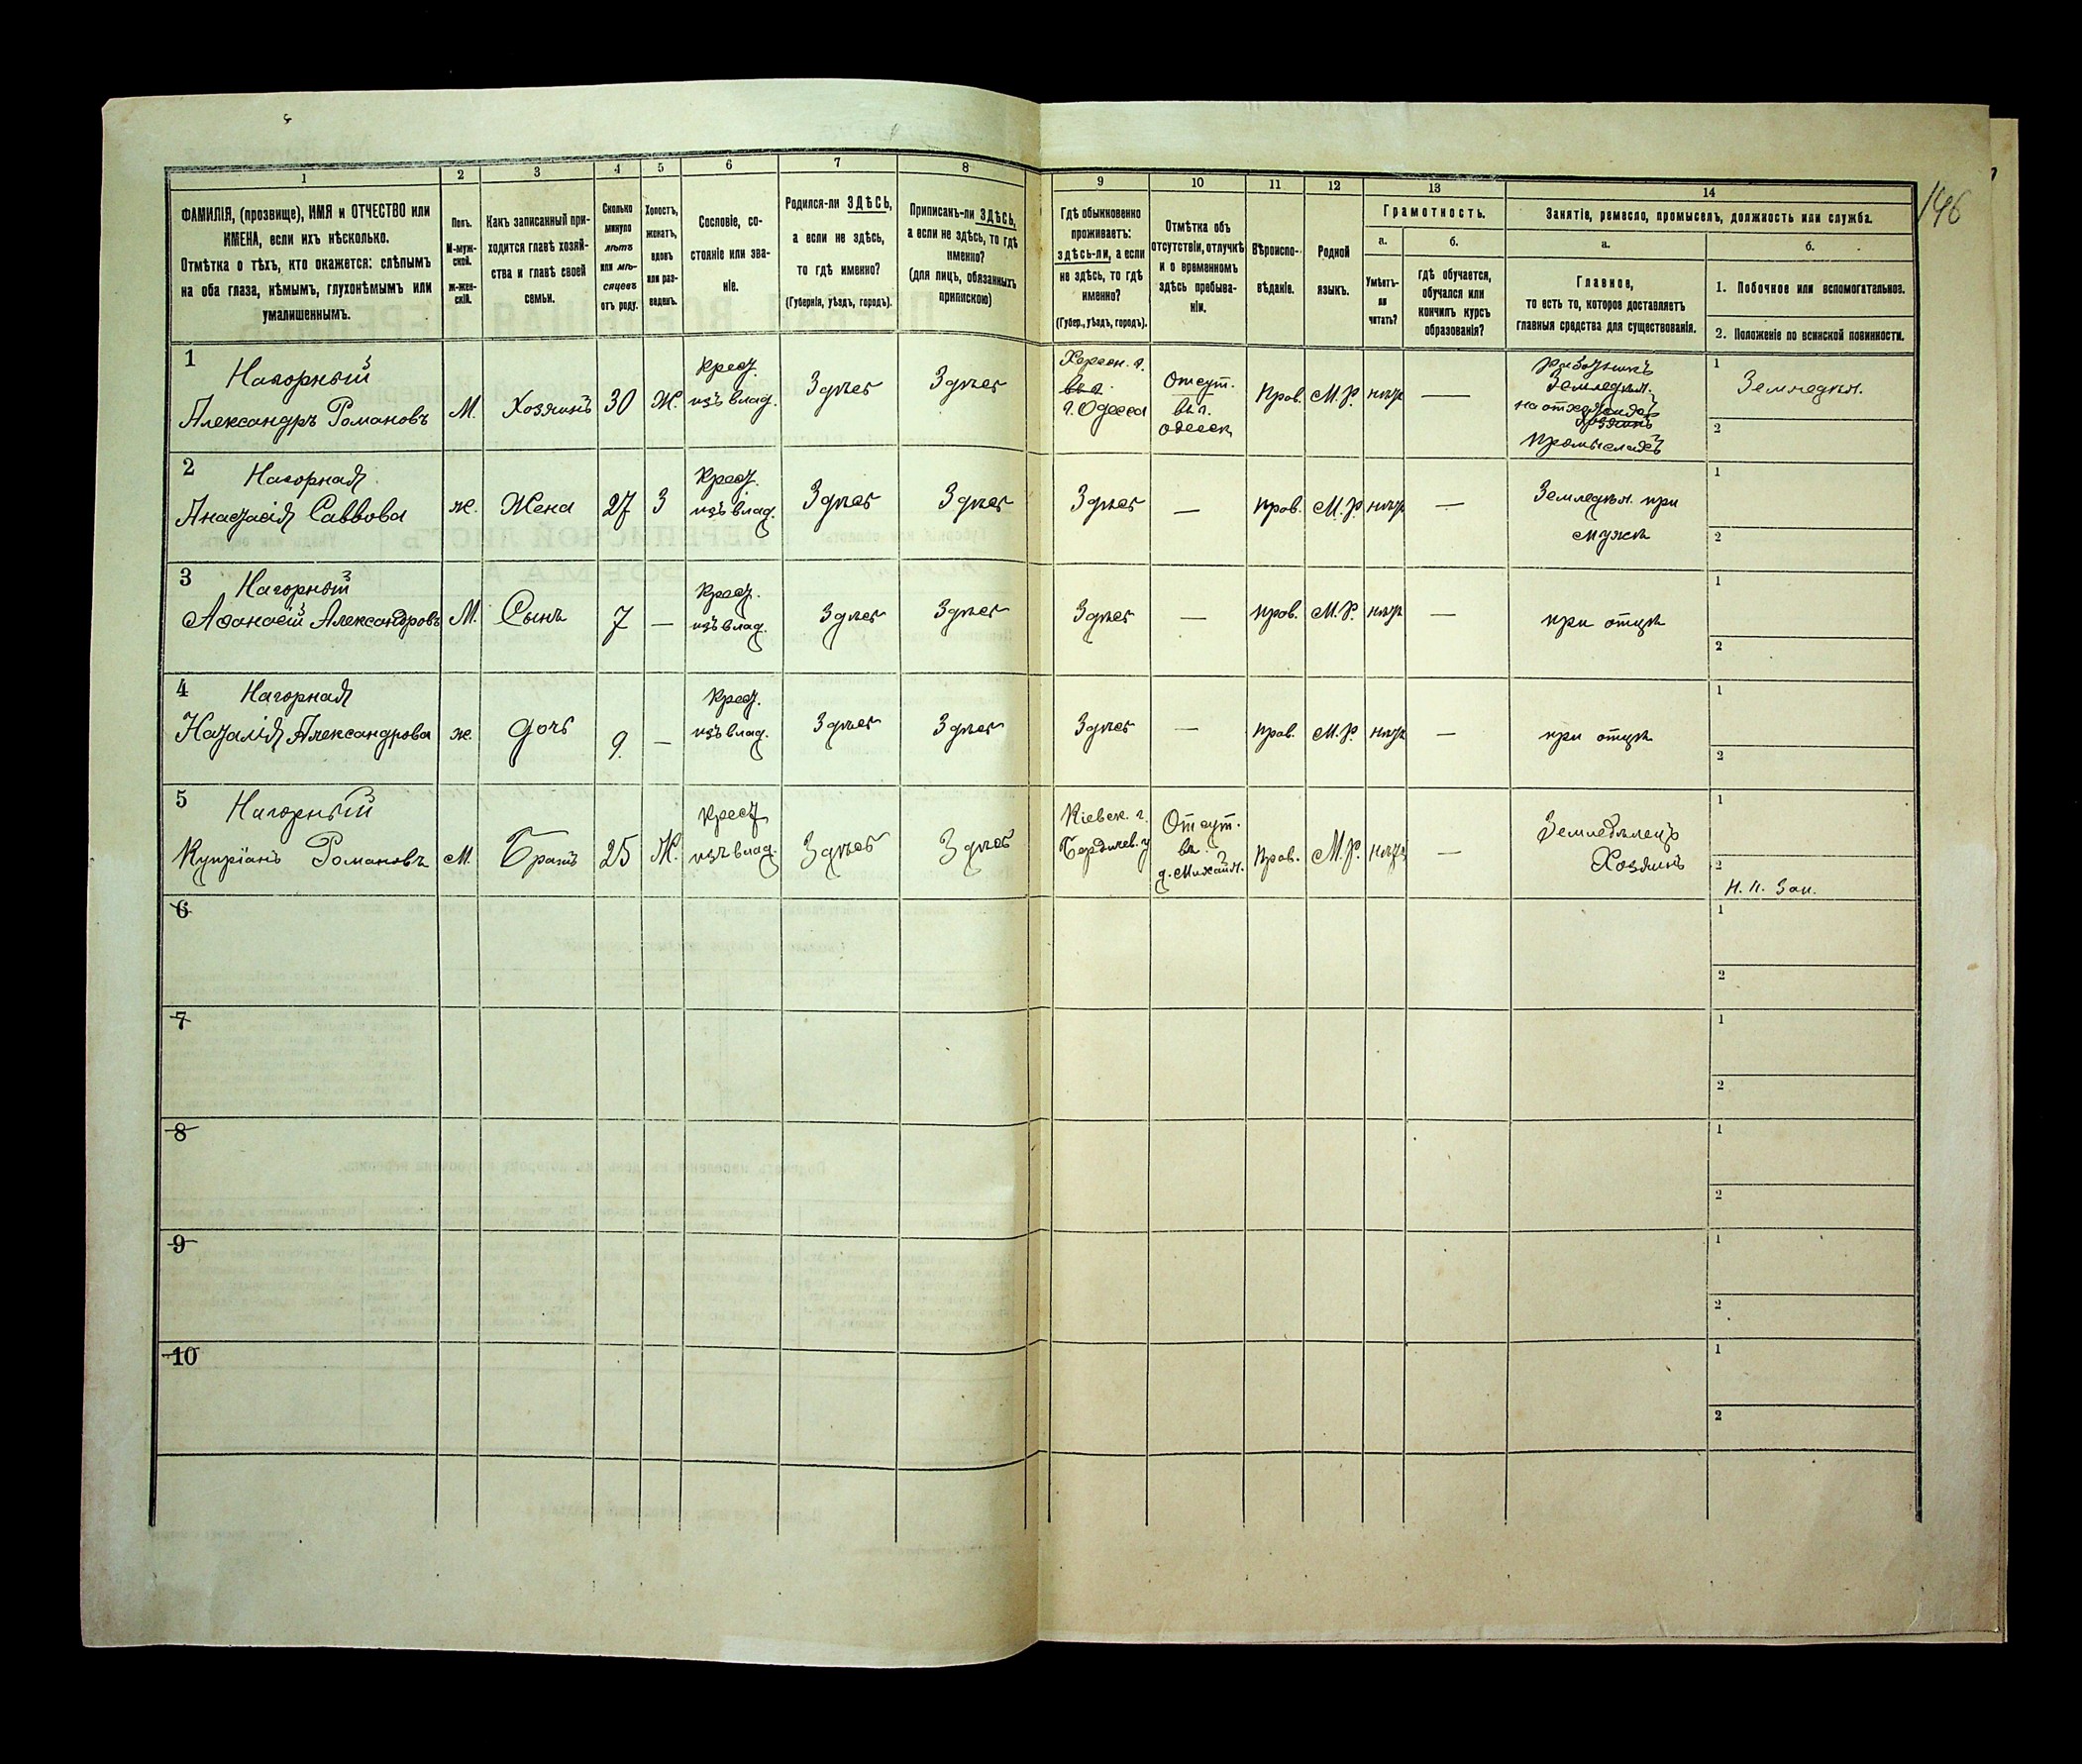 146
1 2 3 4 5 6 7 8 9 10 11 12 13 14
ФАМИЛІЯ, (прозвище), ИМЯ и ОТЧЕСТВО или
ИМЕНА, если ихъ нѣсколько.
Отмѣтка о тѣхъ, кто окажется: слѣпымъ
на оба глаза, нѣмымъ, глухонѣмымъ или
умалишеннымъ.
Полъ.
М-муж-
ской.
Ж-жен-
скій.
Какъ записанный при-
ходится главѣ хозяй-
ства и главѣ своей
семьи.
Сколько
минуло
лѣтъ
или мѣ-
сяцевъ
отъ роду.
Холостъ,
женатъ,
вдовъ
или раз-
веденъ.
Сословіе, со-
стояніе или зва-
ніе.
Родился-ли ЗДѢСЬ,
а если не здѣсь,
то гдѣ именно?
(Губернія, уѣздъ, городъ).
Приписанъ-ли ЗДѢСЬ,
а если не здѣсь, то гдѣ
именно?
(для лицъ, обязанныхъ
припискою)
Гдѣ обыкновенно
проживаетъ:
здѣсь-ли, а если
не здѣсь, то гдѣ
именно?
(Губер., уѣздъ, городъ).
Отмѣтка объ
отсутствіи, отлучкѣ
и о временномъ
здѣсь пребыва-
ніи.
Вѣроиспо-
вѣданіе.
Родной
языкъ.
Грамотность.
а.
Умѣетъ-
ли
читать?
б.
гдѣ обучается,
обучался или
кончилъ курсъ
образованія?
Занятіе, ремесло, промыселъ, должность или служба.
а.
Главное,
то есть то, которое доставляетъ
главныя средства для существованія.
б.
1. Побочное или вспомогательное.
2. Положеніе по воинской повинности.
1
Нагорный
Александръ Романовъ
М.
Хозяинъ
30
Ж.
Крест.
изъ влад.
Здѣсь
Здѣсь
Херсон. г.
г. Одесса
Отсут.
въ г.
Одесск.
Прав.
М.Р.
нѣтъ
—
работникъ
Земледѣл.
на отхожихъ
промыслахъ
1
Земледѣл.
2
2
Нагорная
Анастасія Саввова
ж.
Жена
27
З
Крест.
изъ влад.
Здѣсь
Здѣсь
Здѣсь
—
прав.
М.Р.
нѣтъ
—
Земледѣл. при
мужѣ
1
2
3
Нагорный
Афанасій Александровъ
М.
Сынъ
7
—
Крест.
изъ влад.
Здѣсь
Здѣсь
Здѣсь
—
прав.
М.Р.
нѣтъ
—
при отцѣ
1
2
4
Нагорная
Наталія Александрова
ж.
дочь
9
—
Крест.
изъ влад.
Здѣсь
Здѣсь
Здѣсь
—
прав.
М.Р.
нѣтъ
—
при отцѣ
1
2
5
Нагорный
Купріанъ Романовъ
М.
Братъ
25
Ж.
Крест.
изъ влад.
Здѣсь
Здѣсь
Кіевск. г.
Бердичев. у
Отсут.
въ
д. Михайл.
прав.
М.Р.
нѣтъ
—
Земледѣлецъ
Хозяинъ
1
2
Н. П. Зап.
6
1
2
7
1
2
8
1
2
9
1
2
10
1
2